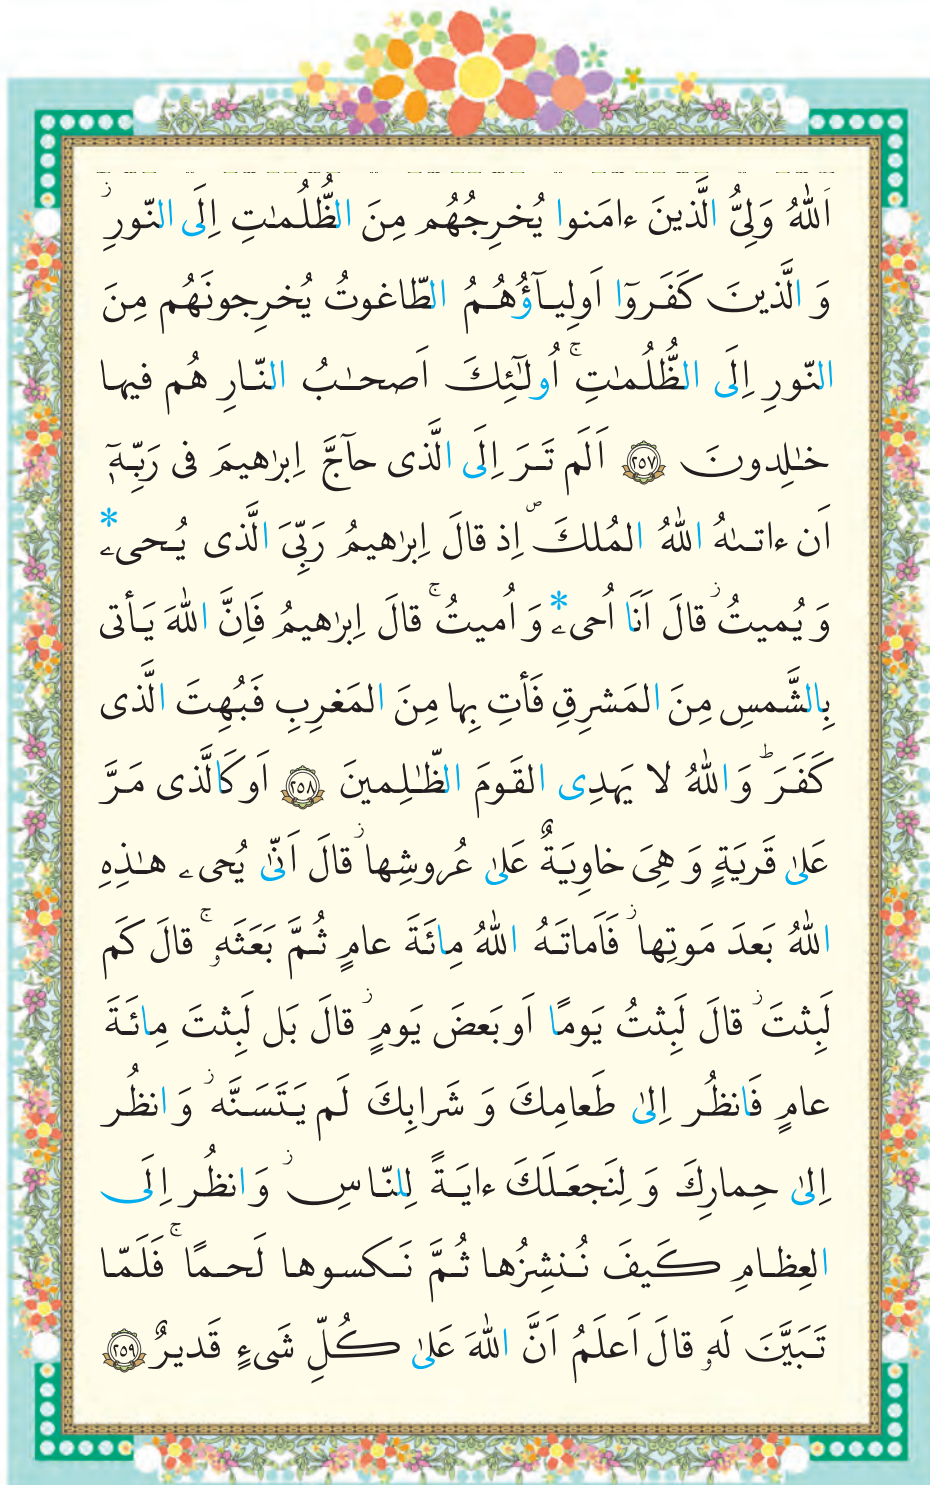 اَللّٰهُ وَلِىُّ الَّذينَ ءامَنوا يُخرِجُهُم مِنَ الظُّلُمـٰتِ اِلَى النّورِ ۖ
وَ الَّذينَ كَفَروٓا اَولِيـآؤُهُـمُ الطّاغوتُ يُخرِجونَهُم مِنَ
النّورِ اِلَى الظُّلُمـٰتِ ۚ اُولـٰٓئِكَ اَصحـٰبُ النّـارِ هُم فيها
خـٰلِدونَ ﴿٢٥٧﴾ اَلَم تَـرَ اِلَى الَّذى حآجَّ اِبرٰهيمَ فى رَبِّـهٖٓ
اَن ءاتـىٰهُ اللّٰهُ المُلكَ ۘ اِذ قالَ اِبرٰهيمُ رَبِّىَ الَّذى يُـحيۦ*
وَ يُميتُ ۖ قالَ اَنَا اُحيۦ* وَ اُميتُ ۚ قالَ اِبرٰهيمُ فَاِنَّ اللّٰهَ يَـأتى
بِالشَّمسِ مِنَ المَشرِقِ فَأتِ بِها مِنَ المَغرِبِ فَبُهِتَ الَّذى
كَفَرَ ؕ وَاللّٰهُ لا يَهدِى القَومَ الظّـٰلِمينَ ﴿٢٥٨﴾ اَو كَالَّذى مَـرَّ
عَلىٰ قَريَةٍ وَ هِىَ خاوِيَـةٌ عَلىٰ عُروشِها ۖ قالَ اَنّىٰ يُحيۦ هـٰذِهِ
اللّٰهُ بَعدَ مَوتِها ۖ فَاَماتَـهُ اللّٰهُ مِائَةَ عامٍ ثُـمَّ بَعَثَهٗ ۚ قالَ كَم
لَبِثتَ ۖ قالَ لَبِثتُ يَومًا اَو بَعضَ يَومٍ ۖ قالَ بَل لَبِثتَ مِائَـةَ
عامٍ فَانظُـر اِلىٰ طَعامِكَ وَ شَرابِكَ لَم يَـتَسَنَّه ۖ وَ انظُـر
اِلىٰ حِمارِكَ وَ لِنَجعَـلَكَ ءايَـةً لِلنّـاسِ ۖ وَ انظُـر اِلَى
العِظـامِ كَـيفَ نُـنشِزُها ثُـمَّ نَـكسوها لَحـمًا ۚ فَلَمّـا
تَـبَيَّنَ لَهٗ قالَ اَعلَمُ اَنَّ اللّٰهَ عَلىٰ كُـلِّ شَىءٍ قَديرٌ ﴿٢٥٩﴾